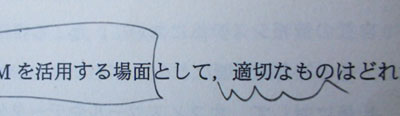 M を活用する場面として，適切なものはどれ